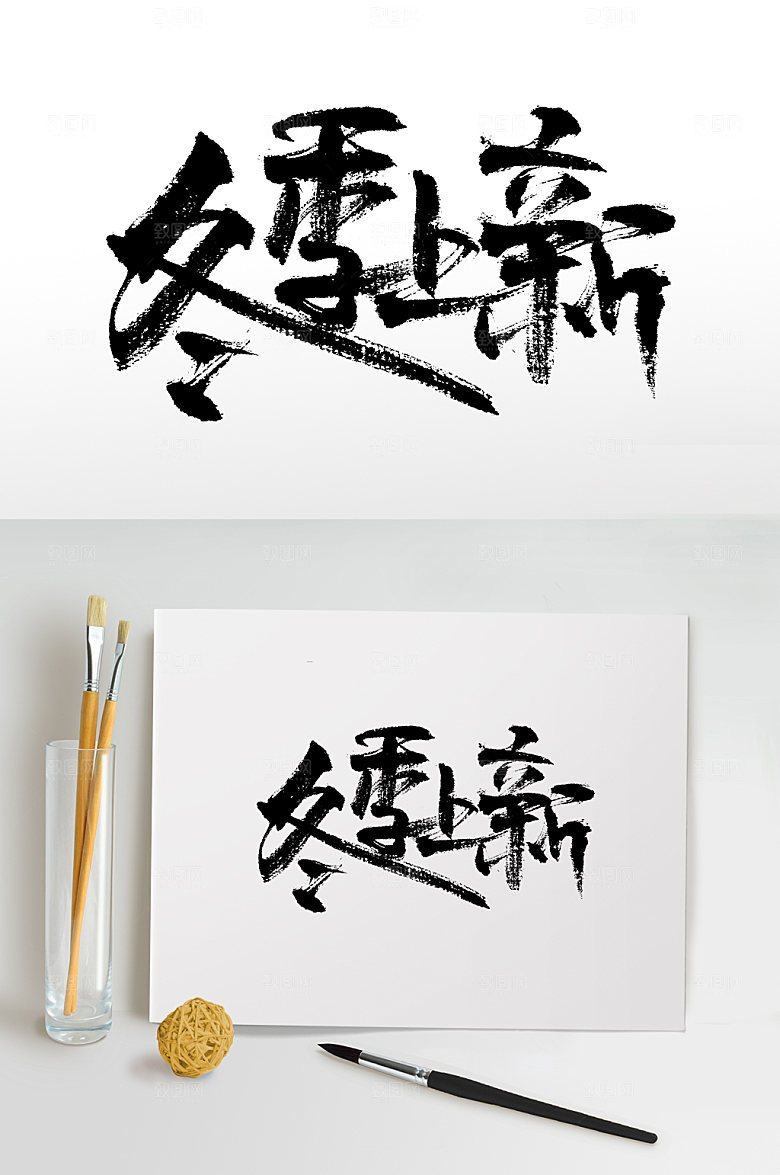 冬季上新
冬季上新